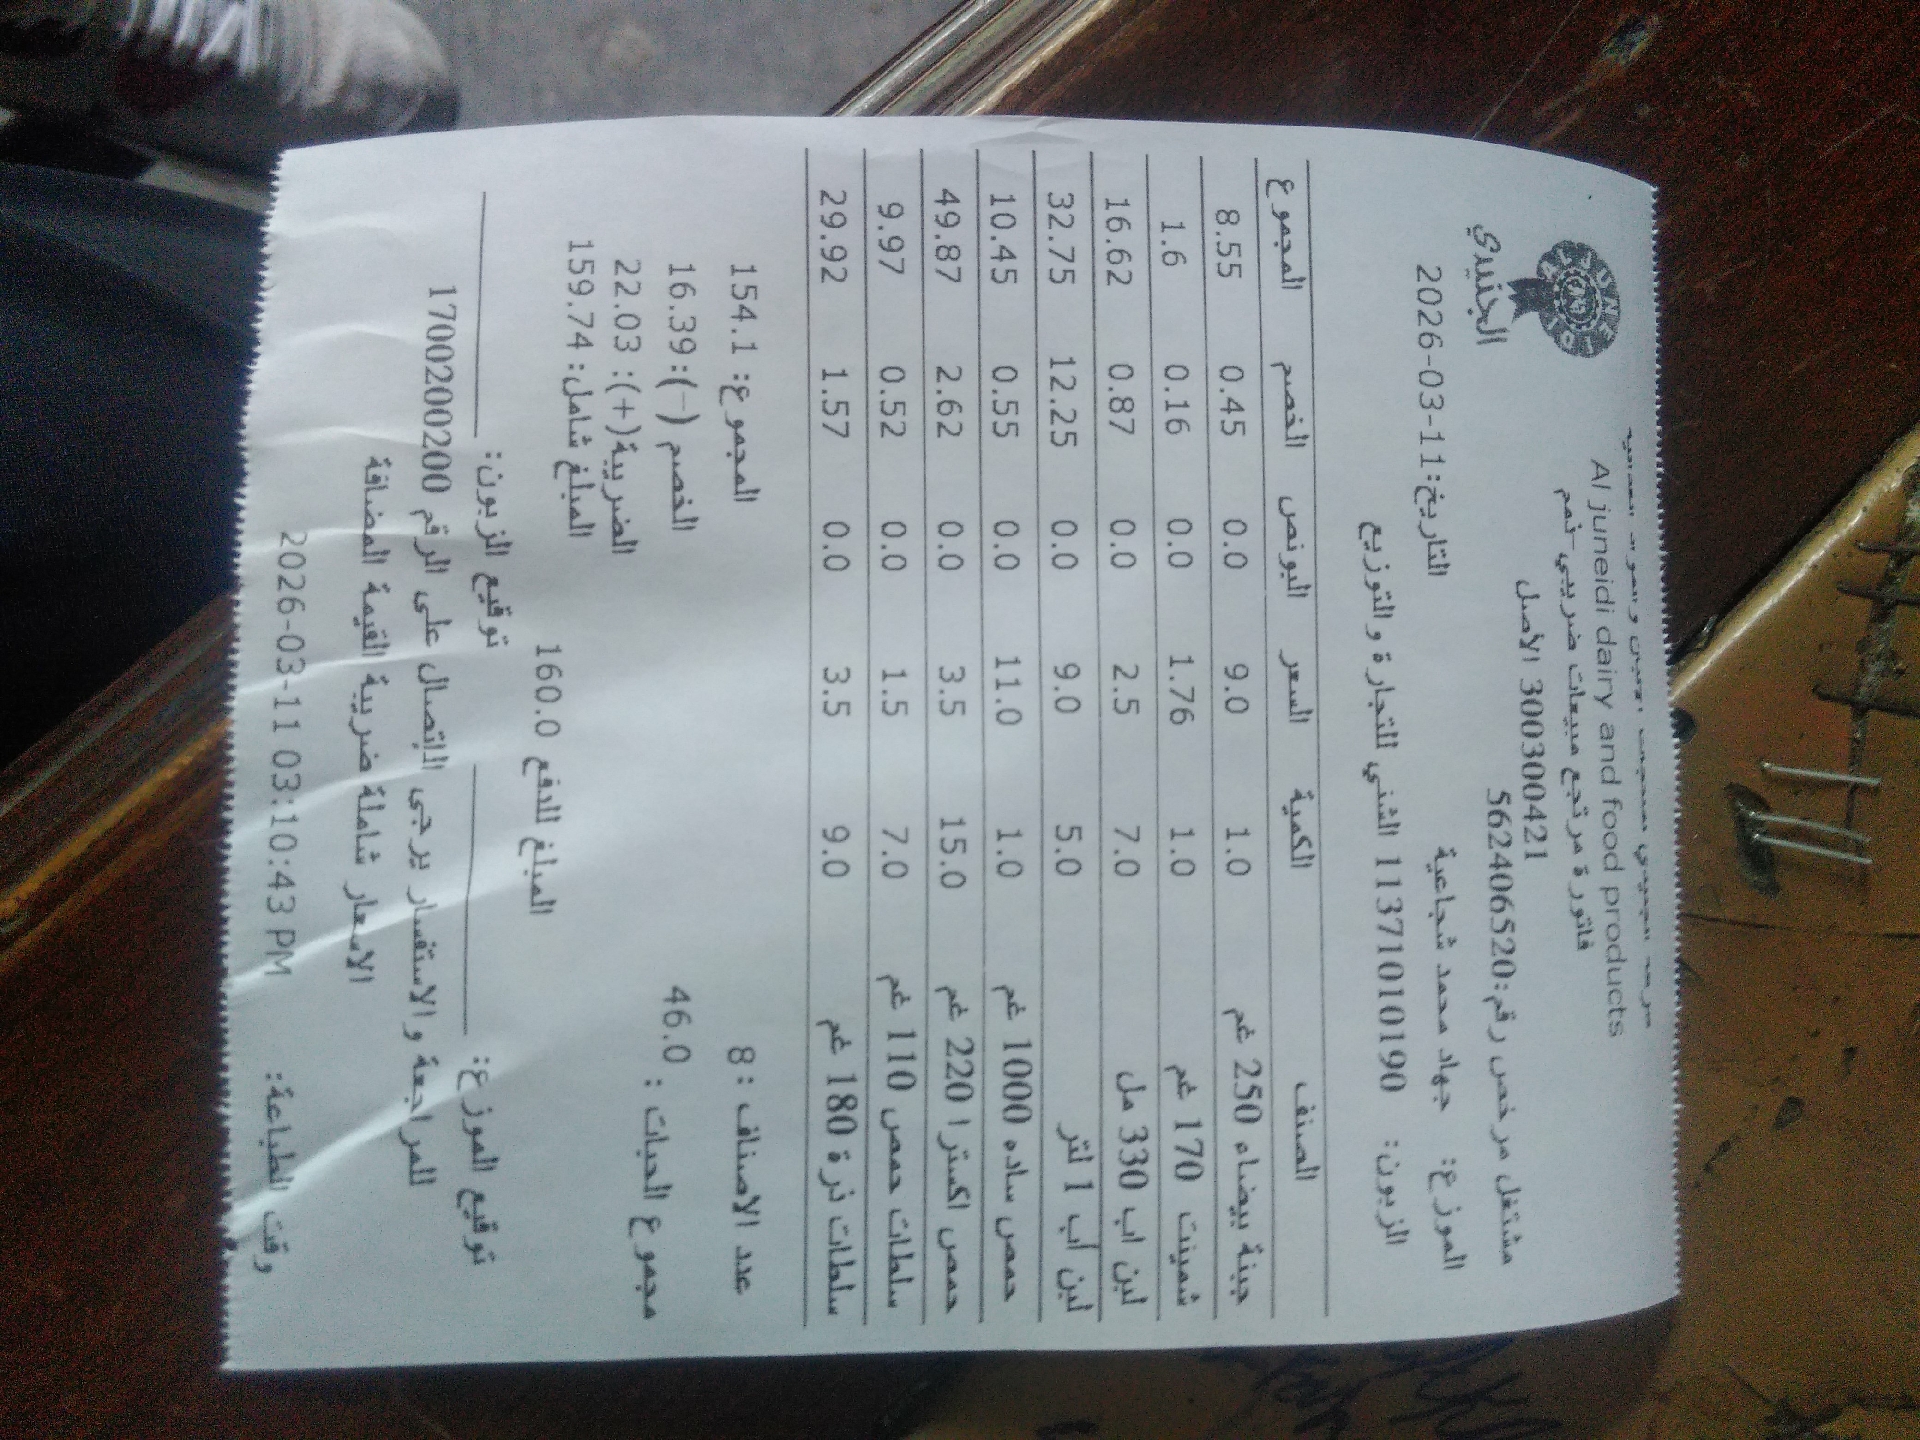 الجنيدي
Al juneidi dairy and food products
فاتورة مرتجع مبيعات ضريبي-ذمم
300300421 الاصل
مشتغل مرخص رقم:562406520
التاريخ:2026-03-11
الموزع: جهاد محمد شجاعية
الزبون: 11371010190 الشني للتجارة والتوزيع
الصنف الكمية السعر البونص الخصم المجموع
جبنة بيضاء 250 غم 1.0 9.0 0.0 0.45 8.55
شمينت 170 غم 1.0 1.76 0.0 0.16 1.6
لبن اب 330 مل 7.0 2.5 0.0 0.87 16.62
لبن أب 1 لتر 5.0 9.0 0.0 12.25 32.75
حمص ساده 1000 غم 1.0 11.0 0.0 0.55 10.45
حمص اكسترا 220 غم 15.0 3.5 0.0 2.62 49.87
سلطات حمص 110 غم 7.0 1.5 0.0 0.52 9.97
سلطات ذرة 180 غم 9.0 3.5 0.0 1.57 29.92
عدد الاصناف : 8 المجموع: 154.1
مجموع الحبات : 46.0 الخصم (-): 16.39
الضريبة(+): 22.03
المبلغ شامل: 159.74
المبلغ للدفع 160.0
توقيع الموزع: توقيع الزبون:
للمراجعة والاستفسار يرجى الاتصال على الرقم 1700200200
الاسعار شاملة ضريبة القيمة المضافة
وقت الطباعة: 2026-03-11 03:10:43 PM